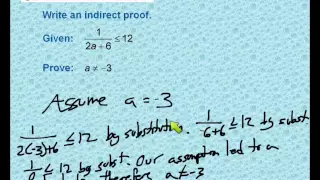 Write an indirect proof.
Given: 1/(2a+6) ≤ 12
Prove: a ≠ -3
Assume a = -3
1/(2(-3)+6) ≤ 12 by substitution. 1/(-6+6) ≤ 12 by subst.
1/0 ≤ 12 by subst. Our assumption led to a
therefore a ≠ -3